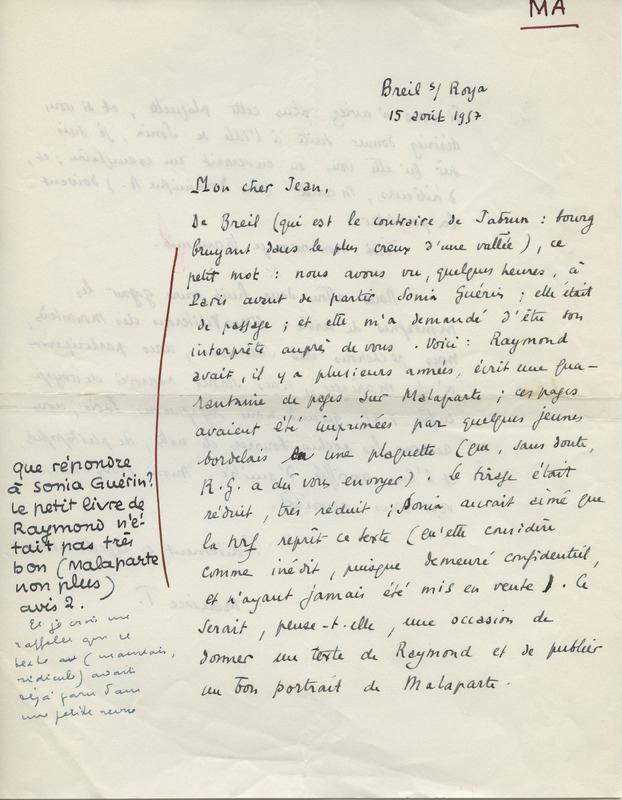 MA
Breil s/ Roya
15 août 1957
Mon cher Jean,
De Breil (qui est le contraire de : bourg
bruyant dans le plus creux d'une vallée), ce
petit mot : nous avons vu, quelques heures, à
Paris avant de partir Sonia Guérin ; elle était
de passage ; et elle m'a demandé d'être son
interprète auprès de vous. Voici : Raymond
avait, il y a plusieurs années, écrit une qua-
rantaine de pages sur Malaparte ; ces pages
avaient été imprimées par quelques jeunes
bordelais en une plaquette (que, sans doute,
R.G. a dû vous envoyer). Le tirage était
réduit, très réduit ; Sonia aurait aimé que
la nrf reprît ce texte (qu'elle considère
comme inédit, puisque demeuré confidentiel,
et n'ayant jamais été mis en vente). Ce
serait, pense-t-elle, une occasion de
donner un texte de Raymond et de publier
un bon portrait de Malaparte.
que répondre
à Sonia Guérin?
le petit livre de
Raymond n'é-
tait pas très
bon (Malaparte
non plus)
avis 2.
Et je crois me
rappeler que ce
texte (mauvais,
ridicule) avait
déjà paru dans
une petite revue